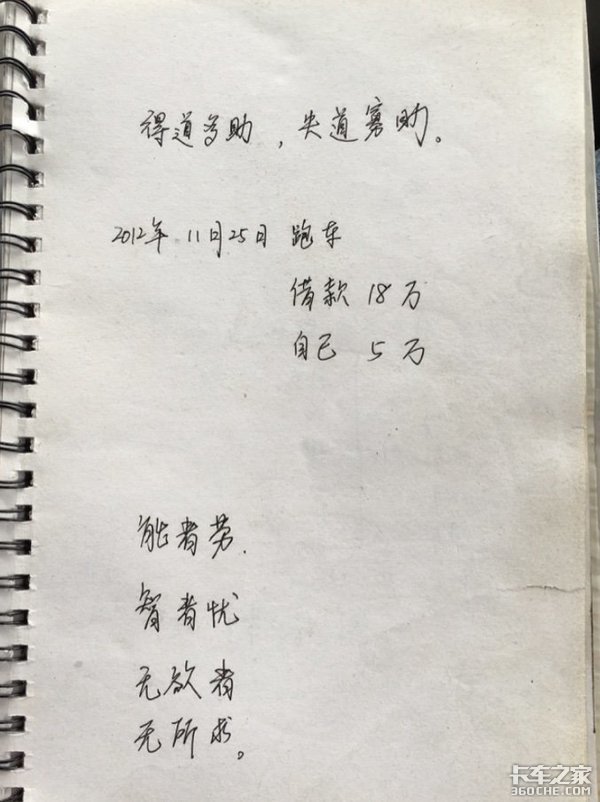 得道多助，失道寡助。
2012年 11月25日 跑车
借款 18万
自己 5万
能者劳.
智者忧
无欲者
无所求。
卡车之家
360CHE.COM